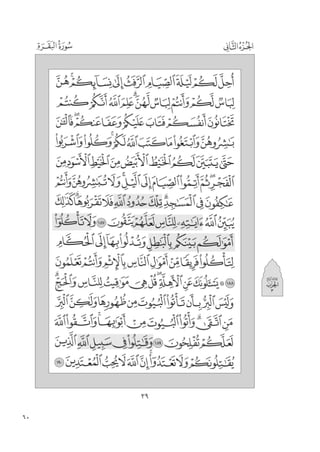 الجُزءُ الثَّانِي
سُورَةُ البَقَرَةِ
أُحِلَّ لَكُمْ لَيْلَةَ ٱلصِّيَامِ ٱلرَّفَثُ إِلَىٰ نِسَآئِكُمْۚ هُنَّ
لِبَاسٌ لَّكُمْ وَأَنتُمْ لِبَاسٌ لَّهُنَّۗ عَلِمَ ٱللَّهُ أَنَّكُمْ كُنتُمْ
تَخْتَانُونَ أَنفُسَكُمْ فَتَابَ عَلَيْكُمْ وَعَفَا عَنكُمْۖ فَٱلْـَٰٔنَ
بَٰشِرُوهُنَّ وَٱبْتَغُوا۟ مَا كَتَبَ ٱللَّهُ لَكُمْۚ وَكُلُوا۟ وَٱشْرَبُوا۟
حَتَّىٰ يَتَبَيَّنَ لَكُمُ ٱلْخَيْطُ ٱلْأَبْيَضُ مِنَ ٱلْخَيْطِ ٱلْأَسْوَدِ مِنَ
ٱلْفَجْرِۖ ثُمَّ أَتِمُّوا۟ ٱلصِّيَامَ إِلَى ٱلَّيْلِۚ وَلَا تُبَٰشِرُوهُنَّ وَأَنتُمْ
عَٰكِفُونَ فِى ٱلْمَسَٰجِدِۗ تِلْكَ حُدُودُ ٱللَّهِ فَلَا تَقْرَبُوهَاۗ كَذَٰلِكَ
يُبَيِّنُ ٱللَّهُ ءَايَٰتِهِۦ لِلنَّاسِ لَعَلَّهُمْ يَتَّقُونَ ١٨٧ وَلَا تَأْكُلُوٓا۟
أَمْوَٰلَكُم بَيْنَكُم بِٱلْبَٰطِلِ وَتُدْلُوا۟ بِهَآ إِلَى ٱلْحُكَّامِ
لِتَأْكُلُوا۟ فَرِيقًا مِّنْ أَمْوَٰلِ ٱلنَّاسِ بِٱلْإِثْمِ وَأَنتُمْ تَعْلَمُونَ
١٨٨ ۞ يَسْـَٔلُونَكَ عَنِ ٱلْأَهِلَّةِۖ قُلْ هِىَ مَوَٰقِيتُ لِلنَّاسِ وَٱلْحَجِّۗ
وَلَيْسَ ٱلْبِرُّ بِأَن تَأْتُوا۟ ٱلْبُيُوتَ مِن ظُهُورِهَا وَلَٰكِنَّ ٱلْبِرَّ
مَنِ ٱتَّقَىٰۗ وَأْتُوا۟ ٱلْبُيُوتَ مِنْ أَبْوَٰبِهَاۚ وَٱتَّقُوا۟ ٱللَّهَ
لَعَلَّكُمْ تُفْلِحُونَ ١٨٩ وَقَٰتِلُوا۟ فِى سَبِيلِ ٱللَّهِ ٱلَّذِينَ
يُقَٰتِلُونَكُمْ وَلَا تَعْتَدُوٓا۟ۚ إِنَّ ٱللَّهَ لَا يُحِبُّ ٱلْمُعْتَدِينَ ١٩٠
٢٩
٦٠